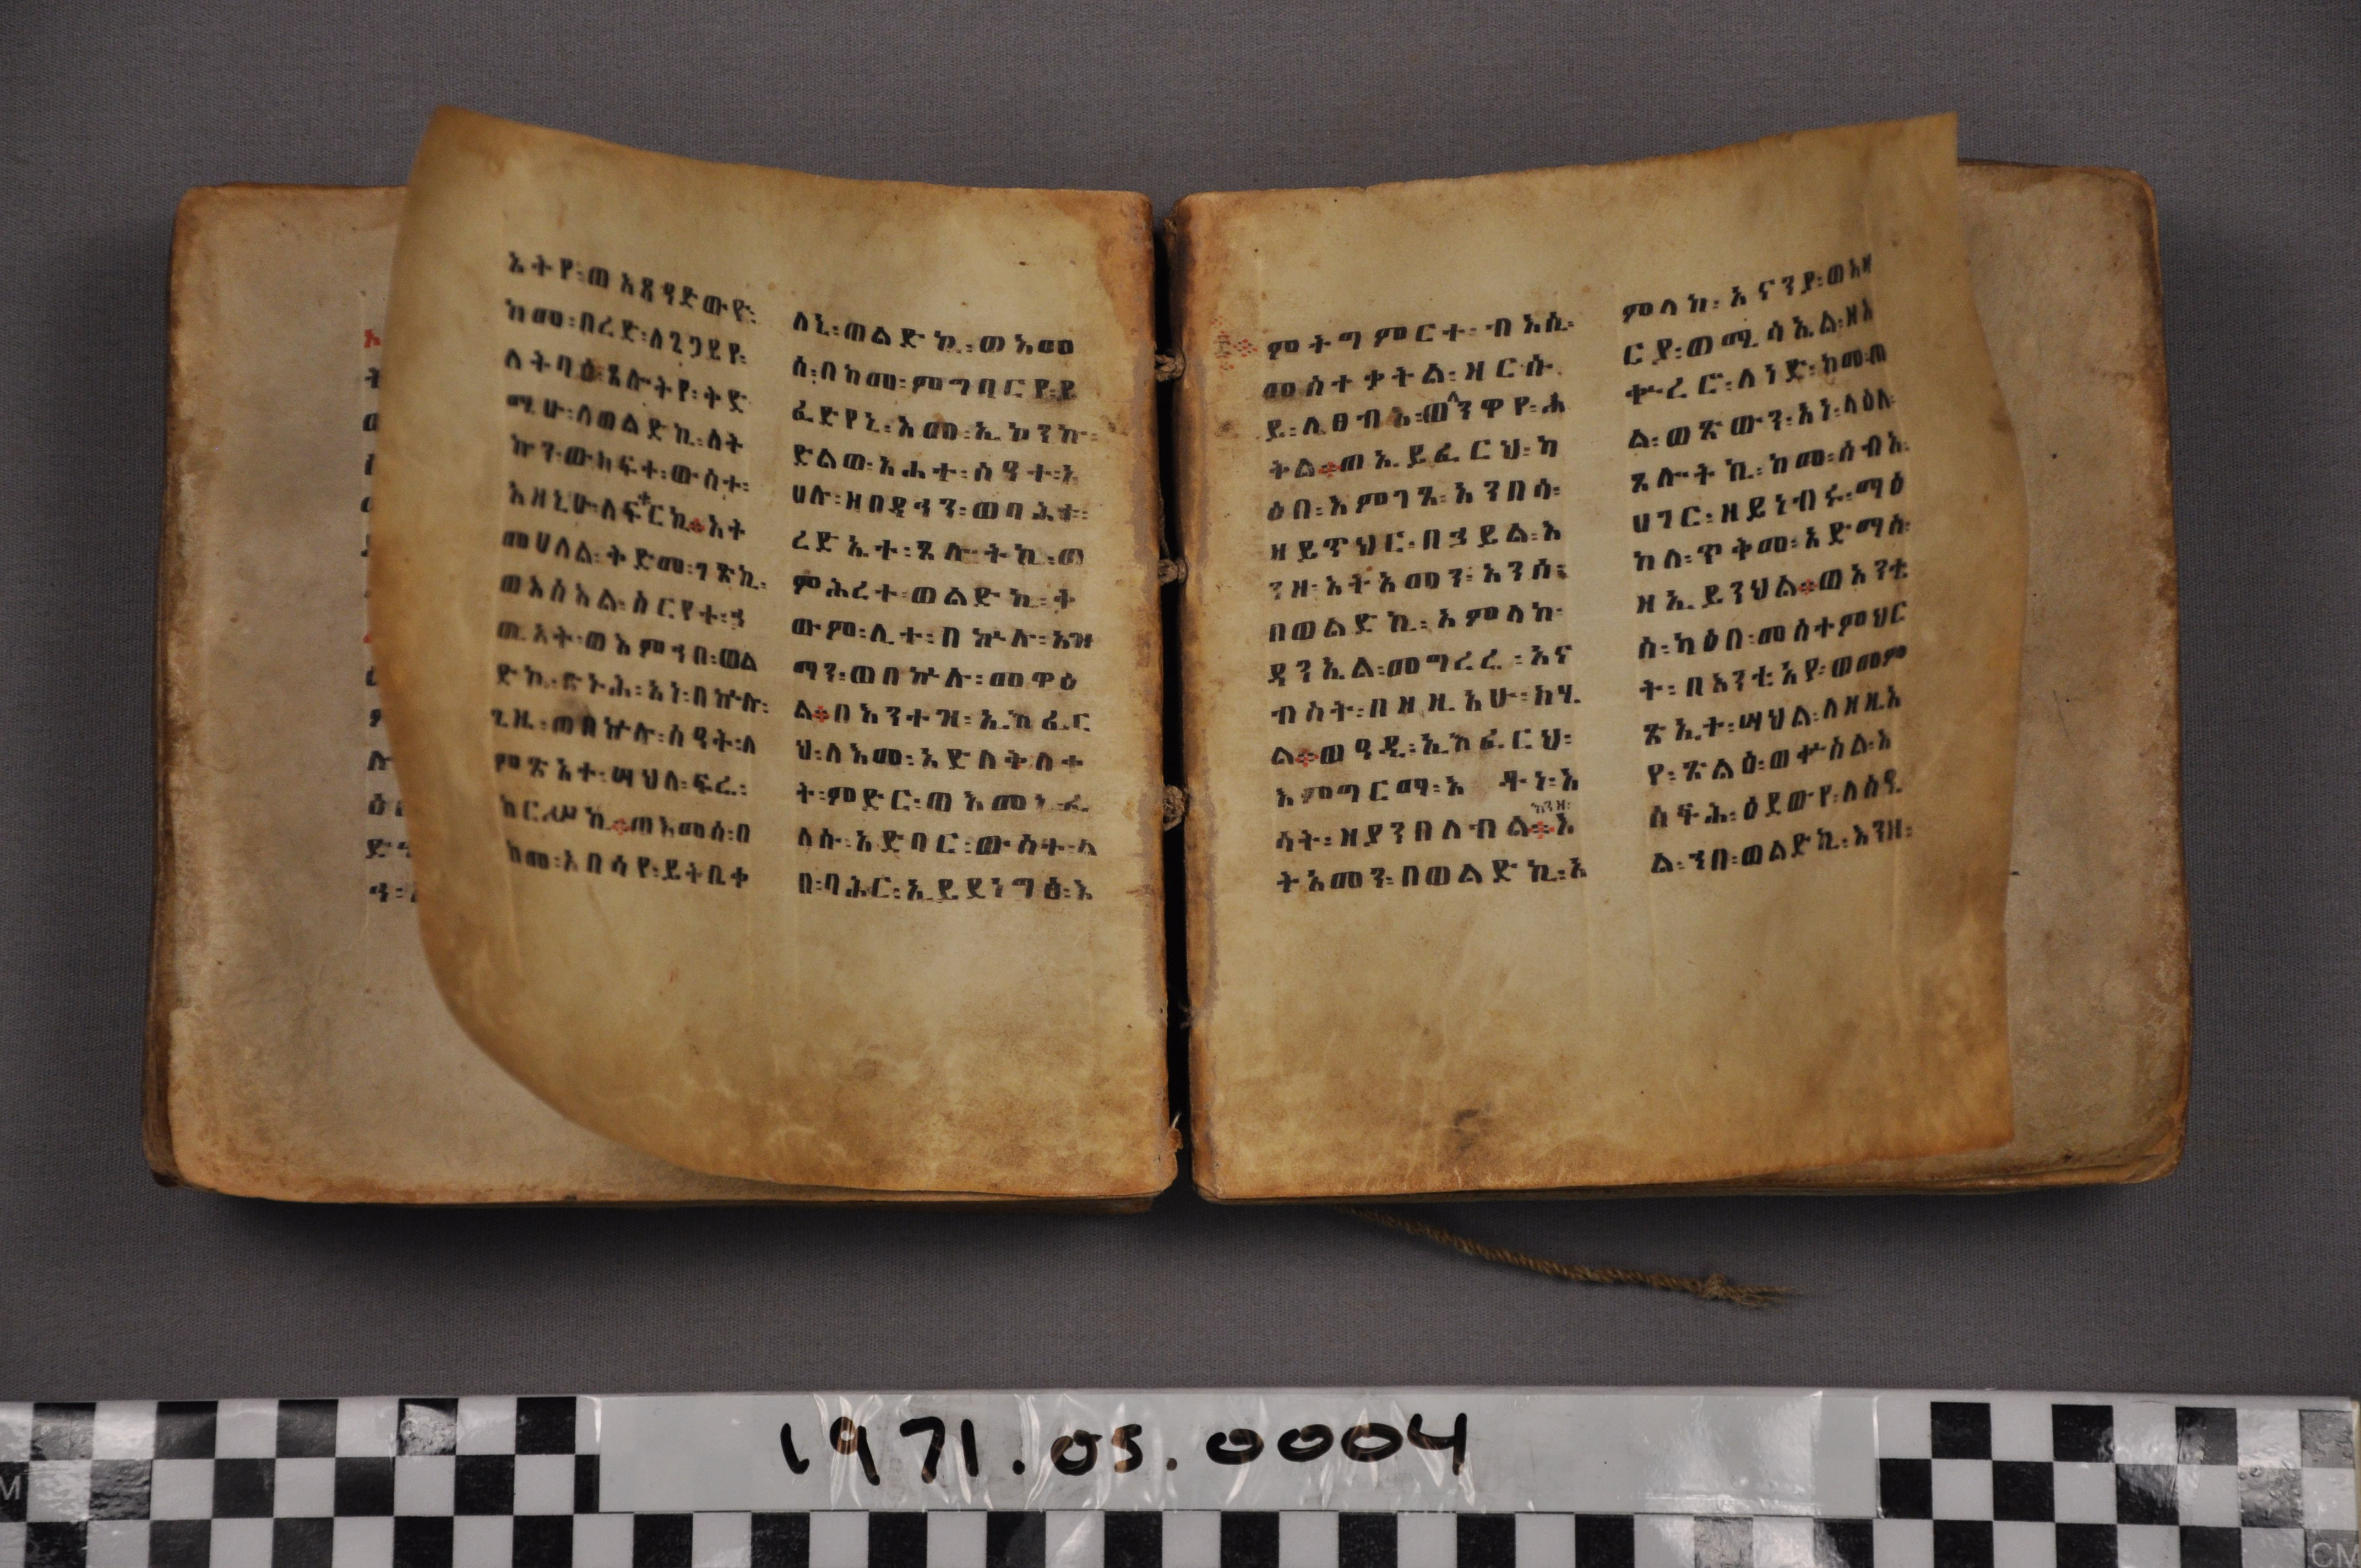 እትየ፡ወአጸዳድውየ፡
ከመ፡በረድ፡ለጌጋይየ፡
ለትባዕ፡ጸሎትየ፡ቅድ
ሜሁ፡ለወልድኪ፡ለት
ኩን፡ውክፍተ፡ውስተ፡
እዘኒሁ፡ለፍቁርኪ።እተ
መሀለል፡ቅድመ፡ገጽኪ፡
ወእስእል፡ስርየተ፡ኀ
ጢአት፡ወእምኀበ፡ወል
ድኪ፡ድኅሒ፡እነ፡በኵሉ፡
ጊዜ፡ወበኵሉ፡ሰዓት፡ለ
ምጽአተ፡ሣህለ፡ፍሬ፡
ከርሥኪ።ወእመሰ፡በ
ከመ፡አበሳየ፡ይትቤቀ
ለኒ፡ወልድኪ፡ወእመ
ሰ፡በከመ፡ምግባርየ፡ይ
ፈድየኒ፡እመ፡ኢኮንኩ፡
ድልወ፡አሐተ፡ሰዓተ፡እ
ሀሉ፡ዘበዲኀን፡ወባሕቱ፡
ረድኤተ፡ጸሎትኪ፡ወ
ምሕረተ፡ወልድኪ፡ት
ውም፡ሊተ፡በኵሉ፡አዝ
ማን፡ወበኵሉ፡መዋዕ
ል።በእንተዝ፡ኢከፈር
ህ፡ለእመ፡አድለቅለቀ
ት፡ምድር፡ወእመነ፡ፈ
ለሱ፡አድባር፡ውስተ፡ል
በ፡ባሕር፡ኢይደነግፅ፡እ
ምትግምርተ፡ብእሲ፡
መስተቃትል፡ዘርሱ
ይ፡ለፀብእ፡ወንዋየ፡ሐ
ቅል።ወኢይፈርህ፡ካ
ዕበ፡እምገጸ፡አንበሳ፡
ዘይጥህር፡በኃይል፡እ
ንዘ፡እትአመን፡አንሰ፡
በወልድኪ፡አምላከ፡
ዳንኤል፡መግረሬ፡አና
ብስት፡በዘዚአሁ፡ከሃ
ል።ወዓዲ፡ኢከፈርህ፡
እምግርማ፡እ ዳተ፡እ
ሳት፡ዘያንበለብል።እ
እንዘ፡
ትአመን፡በወልድኪ፡አ
ምላከ፡አናንያ፡ወአዛ
ርያ፡ወሚሳኤል፡ዘአ
ቍረረ፡ለነድ፡ከመ፡ጠ
ል፡ወጽውን፡አነ፡ለዕለ
ጸሎትኪ፡ከመ፡ሰብአ፡
ሀገር፡ዘይነብሩ፡ማዕ
ከለ፡ጥቅመ፡አድማስ፡
ዘኢይንህል።ወአንቲ
ሰ፡ካዕበ፡መስተምህር
ት፡በእንቲአየ፡ወመም
ጽኢተ፡ሣህል፡ለዘዚአ
የ፡ጽልዕ፡ወቍስል፡አ
ስፍሒ፡ዕደውየ፡ለስዒ
ል፡ኀበ፡ወልድኪ፡እንዘ፡
1971.05.0004
CM